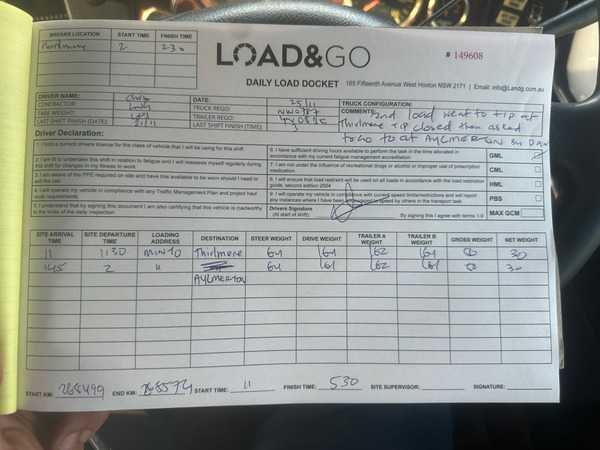 BREAKS LOCATION START TIME FINISH TIME
Thirlmere 2 230
LOAD&GO
# 149608
DAILY LOAD DOCKET 185 Fifteenth Avenue West Hoxton NSW 2171 | Email: info@Landg.com.au
DRIVER NAME: Chris DATE: 25/11 TRUCK CONFIGURATION:
CONTRACTOR: L&G TRUCK REGO: COMMENTS: 2nd load went to tip at
TARE WEIGHT: TRAILER REGO: Thirlmere Tip closed then asked
LAST SHIFT FINISH (DATE) 21/11 LAST SHIFT FINISH (TIME) 3 to go to AYLMERTON By DAN
Driver Declaration:
1. I hold a current drivers licence for the class of vehicle that I will be using for this shift
2. I am fit to undertake this shift in relation to fatigue and I will reassess myself regularly during this shift for changes in my fitness to work.
3. I am aware of the PPE required on site and have this available to be worn should I need to exit the cab.
4. I will operate my vehicle in compliance with any Traffic Management Plan and project haul route requirements
5. I understand that by signing this document I am also certifying that this vehicle is roadworthy to the limits of the daily inspection
6. I have sufficient driving hours available to perform the task in the time allocated in accordance with my current fatigue management accreditation
7. I am not under the influence of recreational drugs or alcohol or improper use of prescription medication
8. I will ensure that load restraint will be used on all loads in accordance with the load restriction guide, second edition 2004
9. I will operate my vehicle in compliance with current speed limits/restrictions and will report any instances where I have been encouraged to speed by others in the transport task
Drivers Signature
(At start of shift) By signing this I agree with terms 1-9
GML
CML
HML
PBS
MAX GCM
SITE ARRIVAL TIME SITE DEPARTURE TIME LOADING ADDRESS DESTINATION STEER WEIGHT DRIVE WEIGHT TRAILER A WEIGHT TRAILER B WEIGHT GROSS WEIGHT NET WEIGHT
11 1130 MINTO Thirlmere 64 161 162 161 30
145 2 " 64 161 162 161 30
AYLMERTON
START KM: 268499 END KM: 268574 START TIME: 11 FINISH TIME: 530 SITE SUPERVISOR: SIGNATURE: